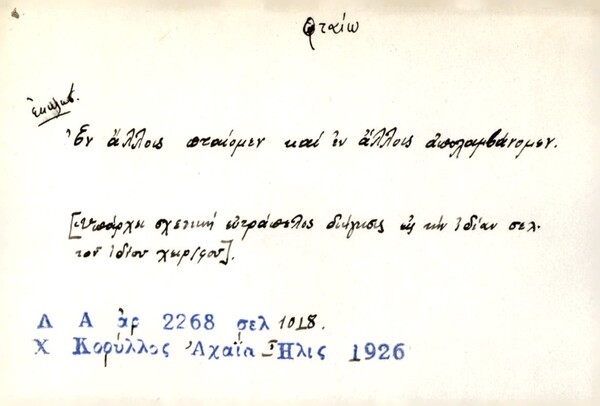 φταίω
Ἐκκλησ.
Ἐν ἄλλοις πταίομεν καί ἐν ἄλλοις ἀπολαμβάνομεν.
[Ὑπάρχει σχετική εὐτράπελος διήγησις εἰς τήν ἰδίαν σελ.
τοῦ ἰδίου χειρ)φου].
Λ Α ἀρ 2268 σελ 1018.
Χ Κορύλλος Ἀχαΐα Ἦλις 1926